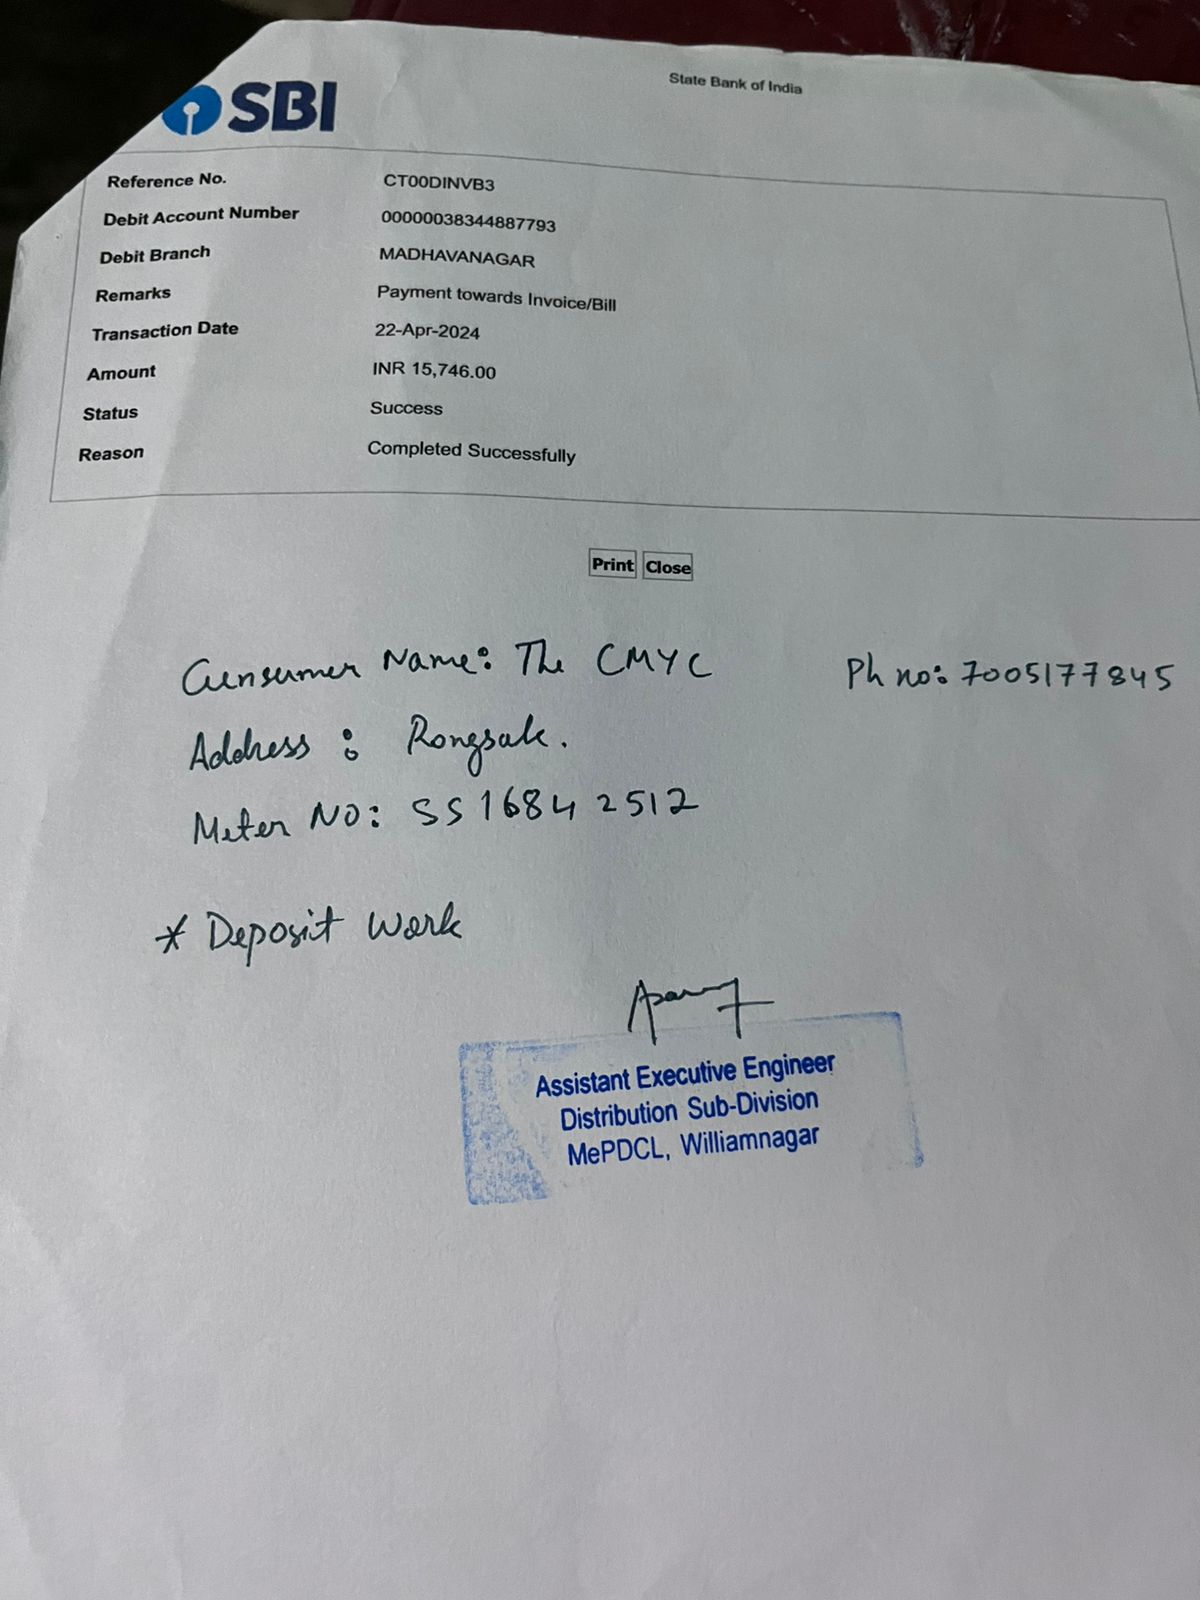 SBI
State Bank of India
Reference No. CT00DINVB3
Debit Account Number 00000038344887793
Debit Branch MADHAVANAGAR
Remarks Payment towards Invoice/Bill
Transaction Date 22-Apr-2024
Amount INR 15,746.00
Status Success
Reason Completed Successfully
Print Close
Cunsumer Name: The CMYC Ph no: 7005177845
Address : Rongsak.
Meter NO: SS16842512
* Deposit Work
Assistant Executive Engineer
Distribution Sub-Division
MePDCL, Williamnagar